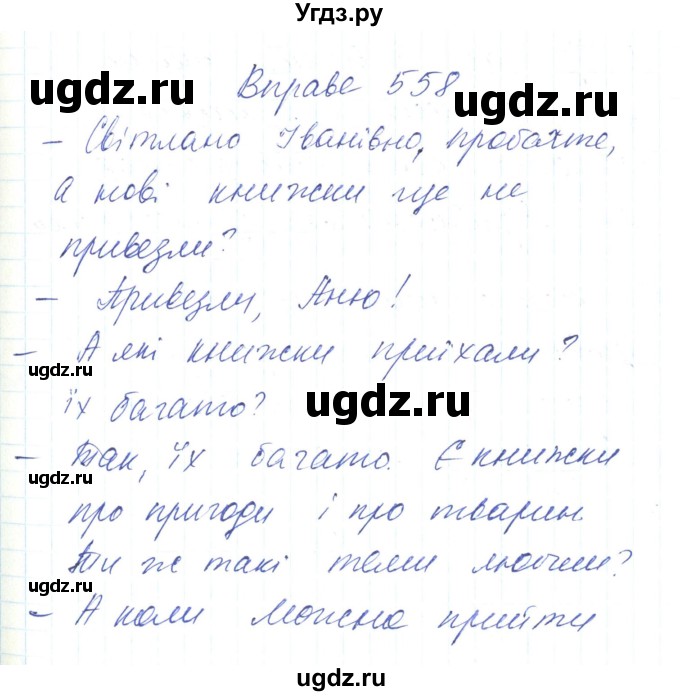 Угдз.ру
Вправа 558
– Світлано Іванівно, пробачте,
а нові книжки ще не
привезли?
– Привезли, Аню!
– А які книжки приїхали?
Їх багато?
– Так, їх багато. Є книжки
про пригоди і про тварин
Ти ж такі теми любиш?
– А коли можна прийти
ugdz.ru
ugdz.ru
ugdz.ru
ugdz.ru
ugdz.ru
ugdz.ru
ugdz.ru
ugdz.ru